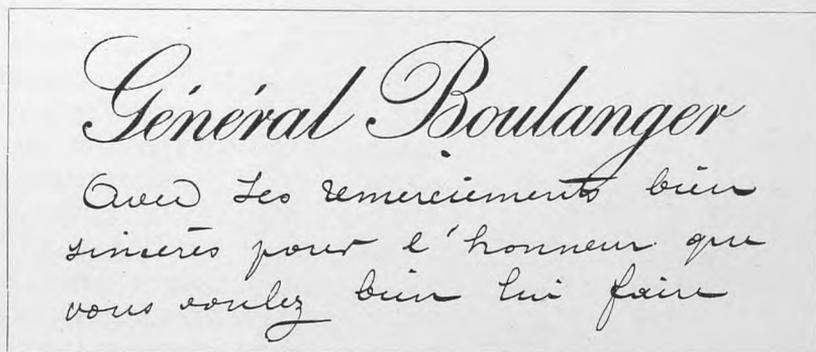 Général Boulanger
Avec ses remerciements bien
sincères pour l'honneur que
vous voulez bien lui faire